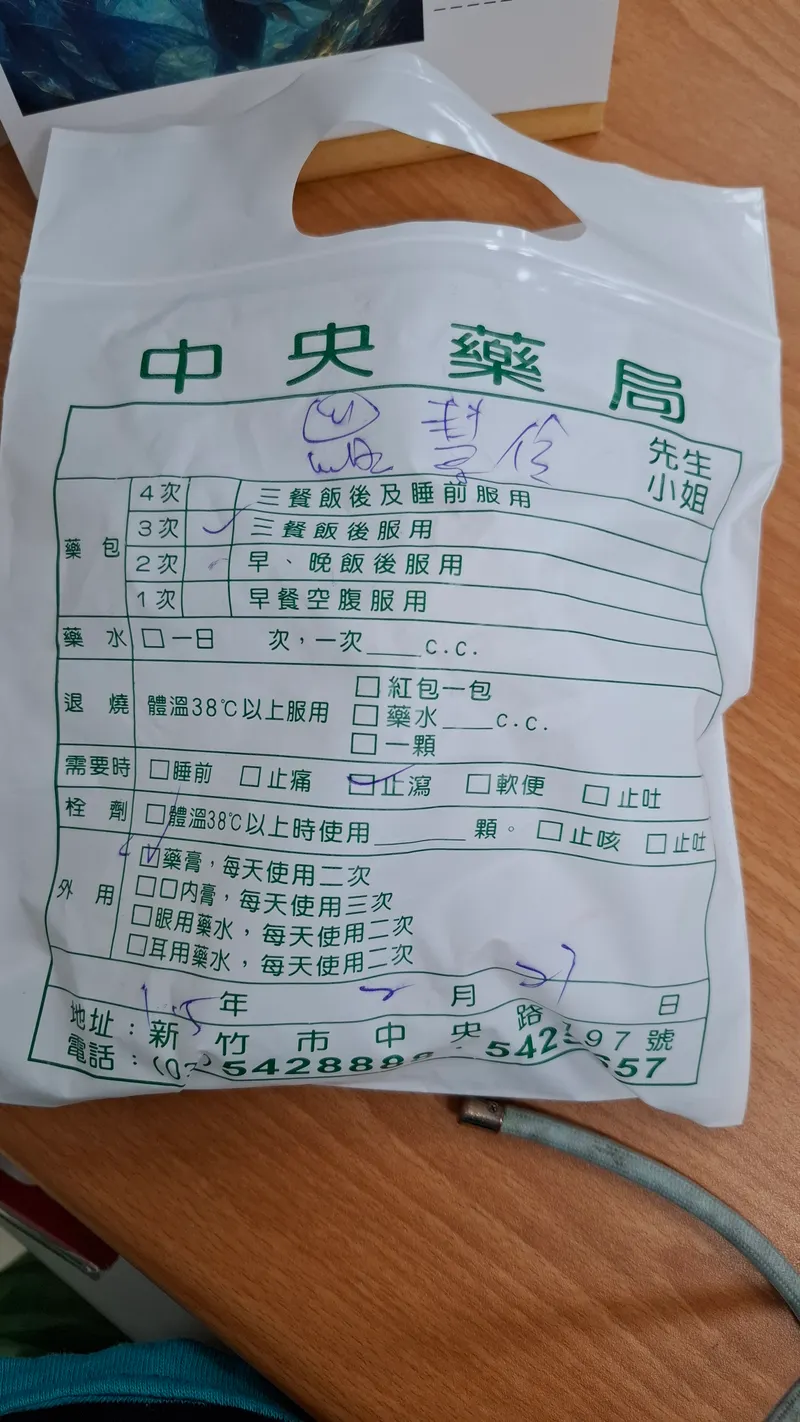 中央藥局
先生
小姐
藥包
4次 三餐飯後及睡前服用
3次 ✓ 三餐飯後服用
2次 早、晚飯後服用
1次 早餐空腹服用
藥水 □一日 次,一次____c.c.
退燒 體溫38℃以上服用 □紅包一包
□藥水____c.c.
□一顆
需要時 □睡前 □止痛 □止瀉 □軟便 □止吐
栓劑 □體溫38℃以上時使用______顆。 □止咳 □止吐
外用 □藥膏,每天使用二次
□□內膏,每天使用三次
□眼用藥水,每天使用二次
□耳用藥水,每天使用二次
年 2 月 27 日
地址:新竹市中央路 97號
電話:(03)5428888 542 657